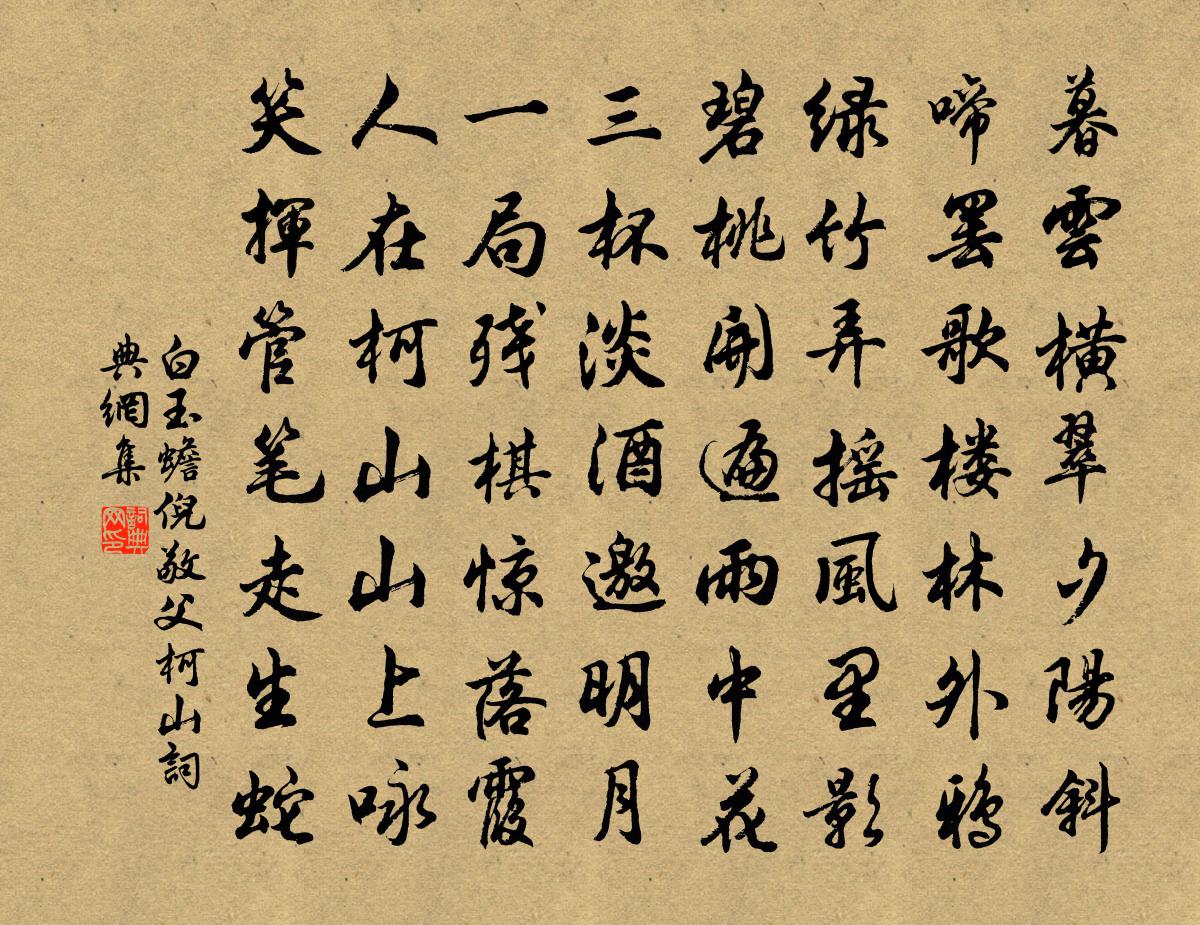 暮雲橫翠夕陽斜
啼罢歌楼林外鴉
绿竹弄摇風里影
碧桃開遍雨中花
三杯淡酒邀明月
一局残棋惊落霞
人在柯山山上咏
笑揮管笔走生蛇
白玉蟾倪敬父柯山詞
典網集
詞典网印